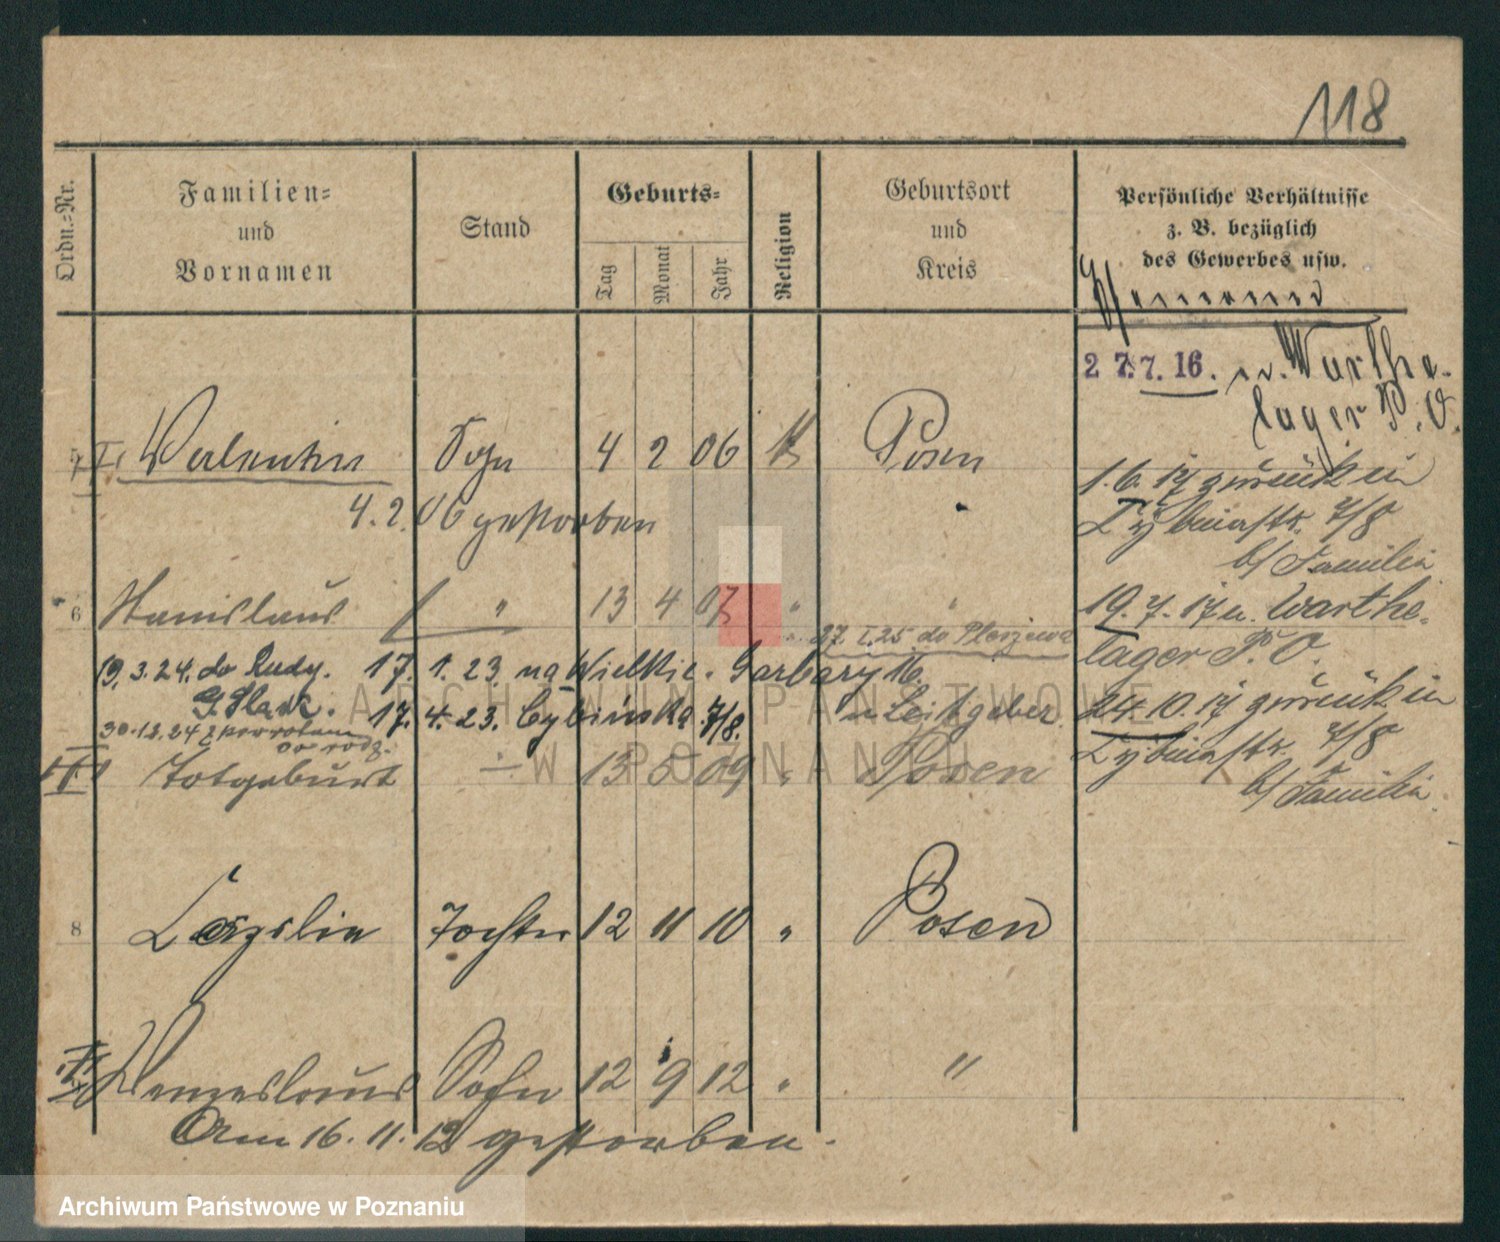 118
Ordn.-Nr.
Familien-
und
Vornamen
Stand
Geburts-
Tag
Monat
Jahr
Religion
Geburtsort
und
Kreis
Persönliche Verhältnisse
z. B. bezüglich
des Gewerbes usw.
27.7.16. n. Warthe-
lager P. O.
5 I Valentin Sohn 4 2 06 K Posen
4. 2. 06 gestorben
1.6.17 zurück in
Zybinastr. 7/8
b/ Familie
6 Stanislaus " 13 4 07 " "
19.7.17 n. Warthe-
lager P. O.
27.I.25 do Pleszewa
19.3.24. do Rudy. 17. 1. 23. na Wielkie. Garbary 16.
G. Sląsk. 17. 4. 23. Cybińska 7/8. u Leitgeber.
24.10.17 zurück in
Zybinastr. 7/8
b/ Familie
30.12.24 z powrotem
do rodz.
II Totgeburt — 13 5 09 " Posen
8 Cäzilia Tochter 12 11 10 " Posen
Wenzeslaus Sohn 12 9 12 " "
Am 16. 11. 12 gestorben.
ARCHIWUM PAŃSTWOWE
W POZNANIU
Archiwum Państwowe w Poznaniu